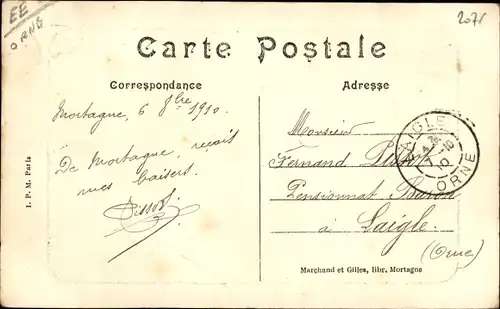 EE
ORNE
2078
Carte Postale
Correspondance
Adresse
Mortagne, 6 8bre 1910.
De Mortagne, reçoit
mes baisers.
Monsieur
Fernand
Pensionnat Baron
à Laigle
(Orne)
LAIGLE
7-10
10
ORNE
I. P. M. Paris
Marchand et Gilles, libr. Mortagne